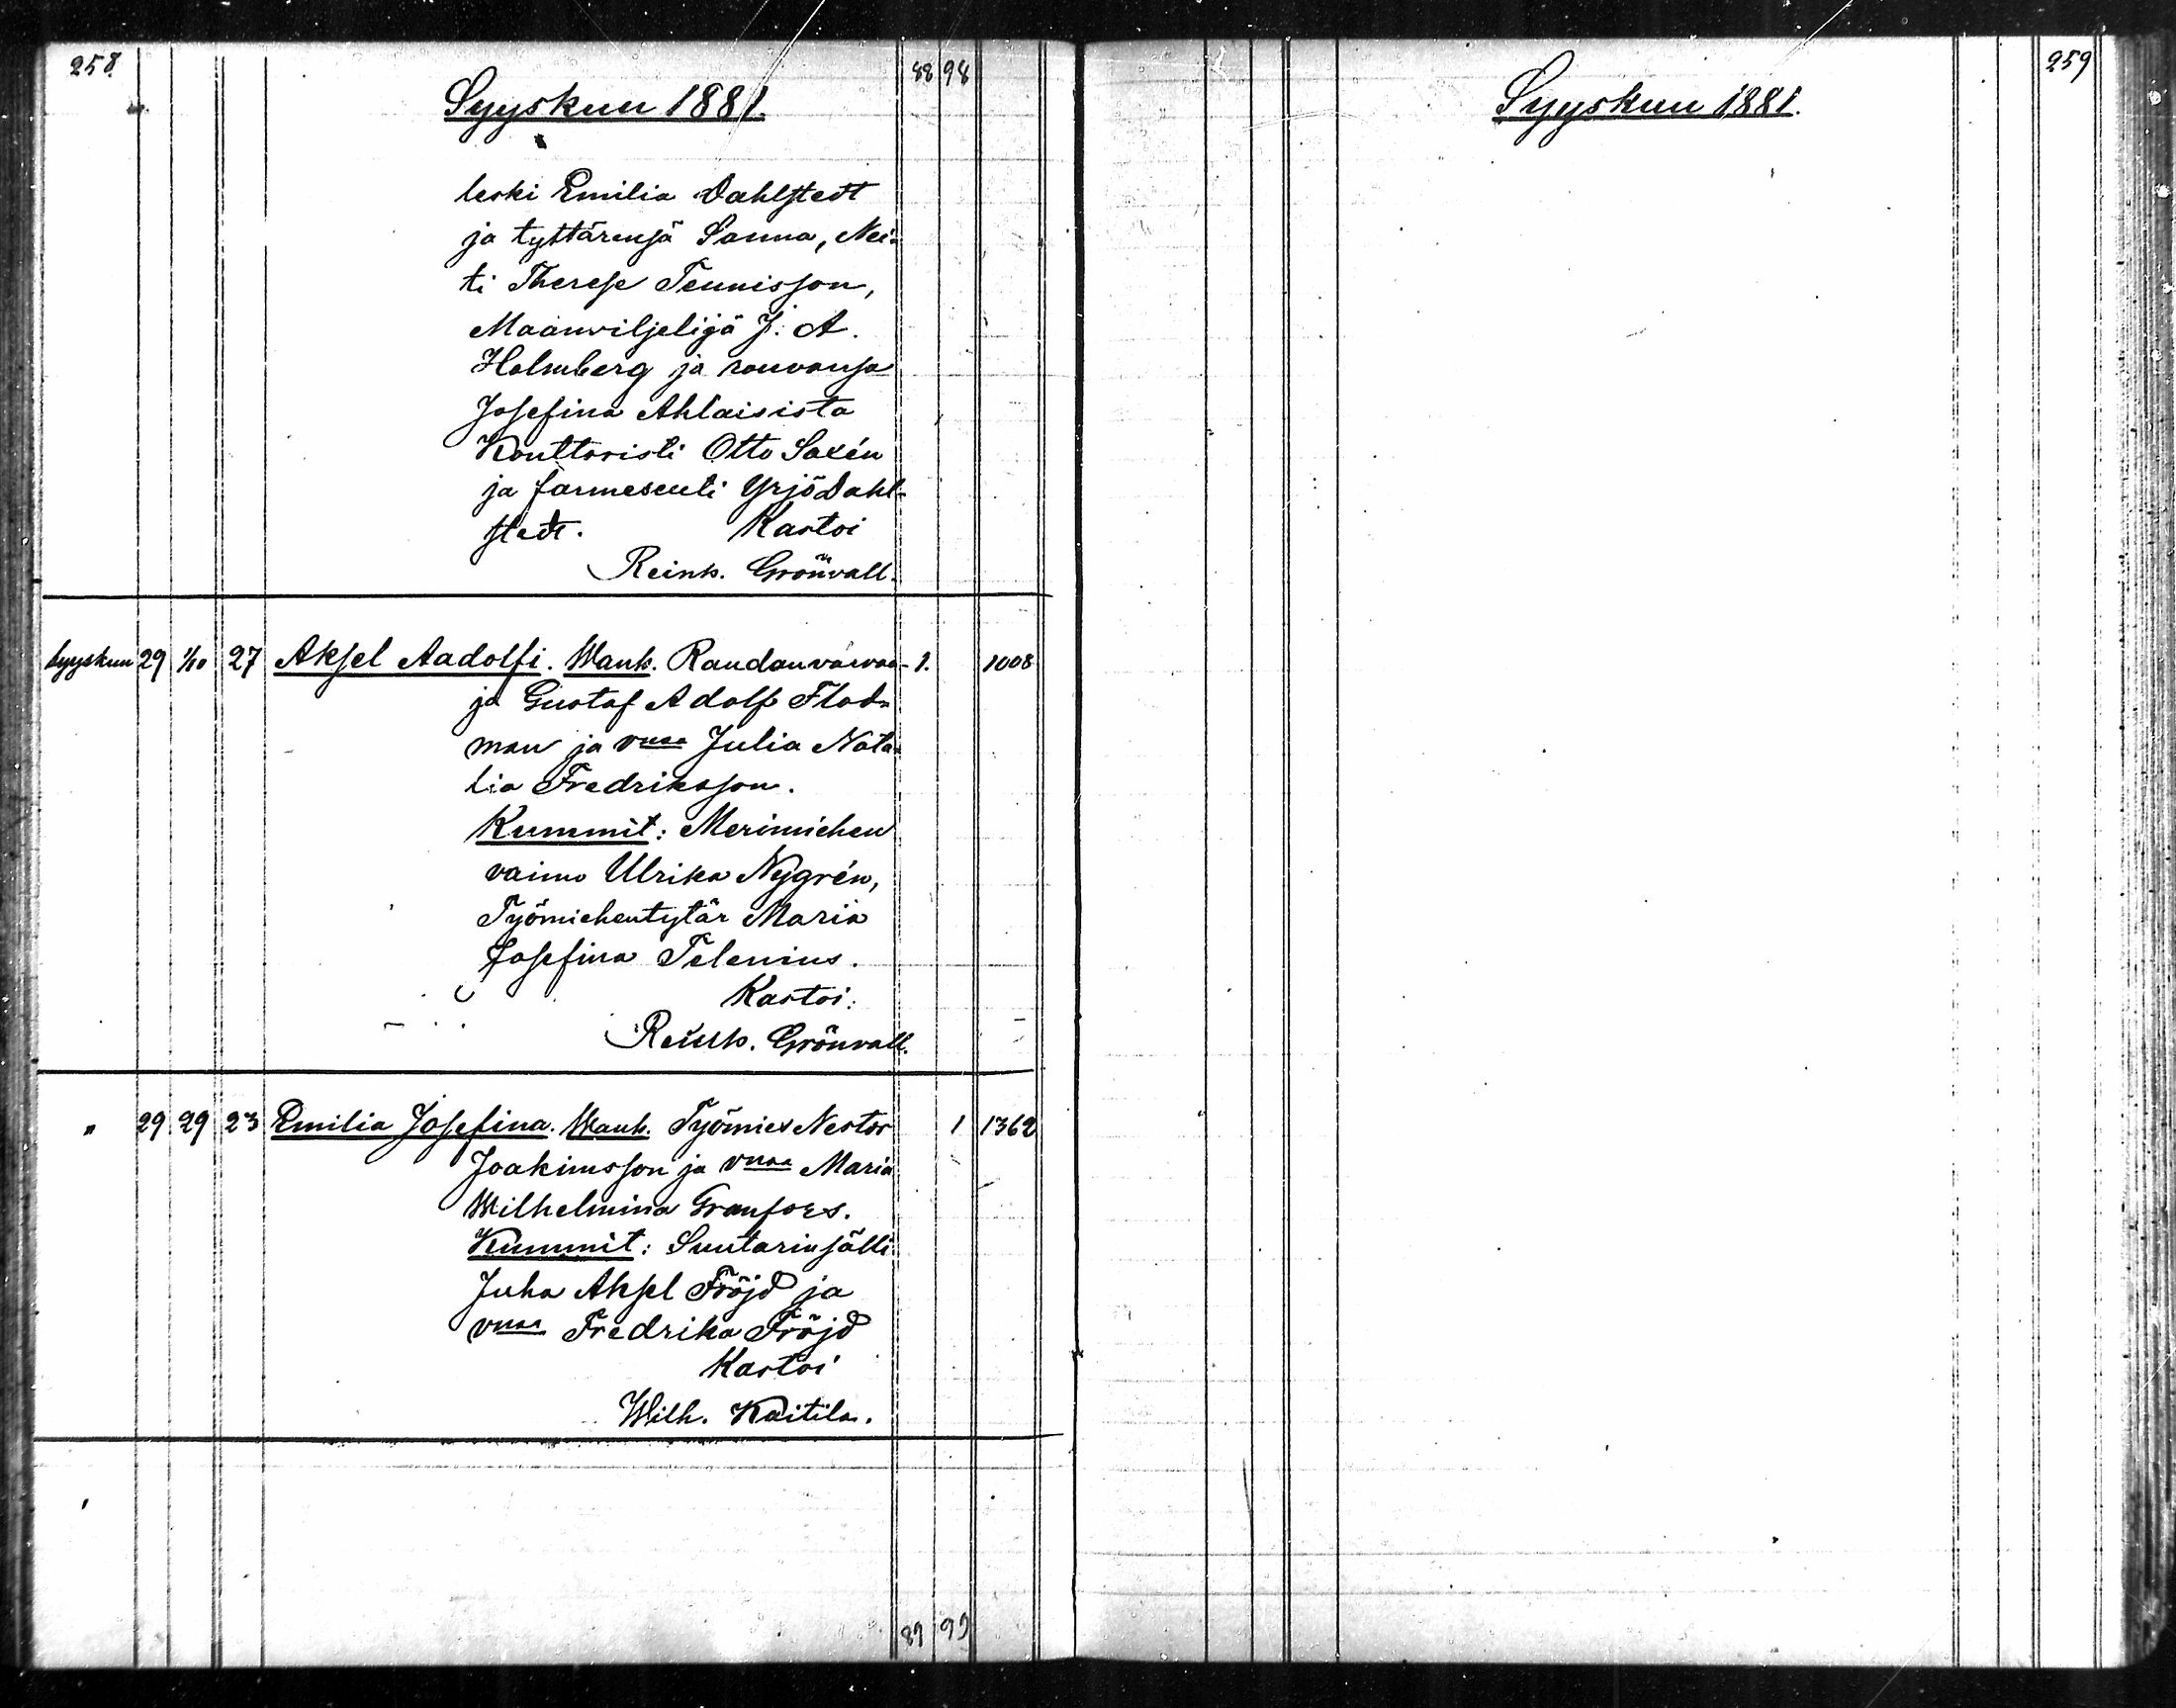 258 88 98
Syyskuu 1881.
leski Emilia Dahlstedt
ja tyttärensä Sanna, Nei-
ti Therese Tennisson,
Maanviljelijä J. A.
Holmberg ja rouvansa
Josefina Ahlaisista
Konttoristi Otto Saxén
ja farmeseuti Yrjö Dahl-
stedt. Kastoi
Reinh. Grönvall.
Syyskuu 29 1/10 27 Aksel Aadolfi. Wanh. Raudanvarvaa- 1. 1008
ja Gustaf Adolf Flod-
man ja vmsa Julia Nata-
lia Fredriksson.
Kummit: Merimiehen
vaimo Ulrika Nygrén,
Työmiehentytär Maria
Josefina Telenius.
Kastoi:
Reinh. Grönvall.
" 29 29 23 Emilia Josefina. Wanh. Työmies Nestor 1 1362
Joakimsson ja vmsa Maria
Wilhelmina Granfors.
Kummit: Suutarinsälli
Juha Aksel Fröjd ja
vmsa Fredrika Fröjd
Kastoi
Wilh. Kaitila.
89 99
259
Syyskuu 1881.